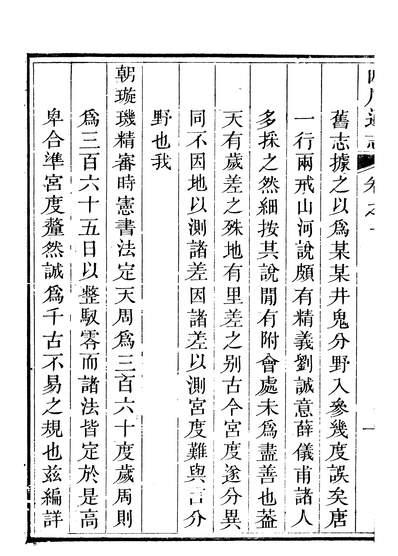 四川通志
卷之十
一
舊志據之以爲某某井鬼分野入參幾度誤矣唐
一行兩戒山河說頗有精義劉誠意薛儀甫諸人
多採之然細按其說閒有附會處未爲盡善也葢
天有歲差之殊地有里差之别古今宮度遂分異
同不因地以測諸差因諸差以測宮度難與言分
野也我
朝璇璣精審時憲書法定天周爲三百六十度歲周則
爲三百六十五日以整馭零而諸法皆定於是高
卑合準宮度釐然誠爲千古不易之規也兹編詳